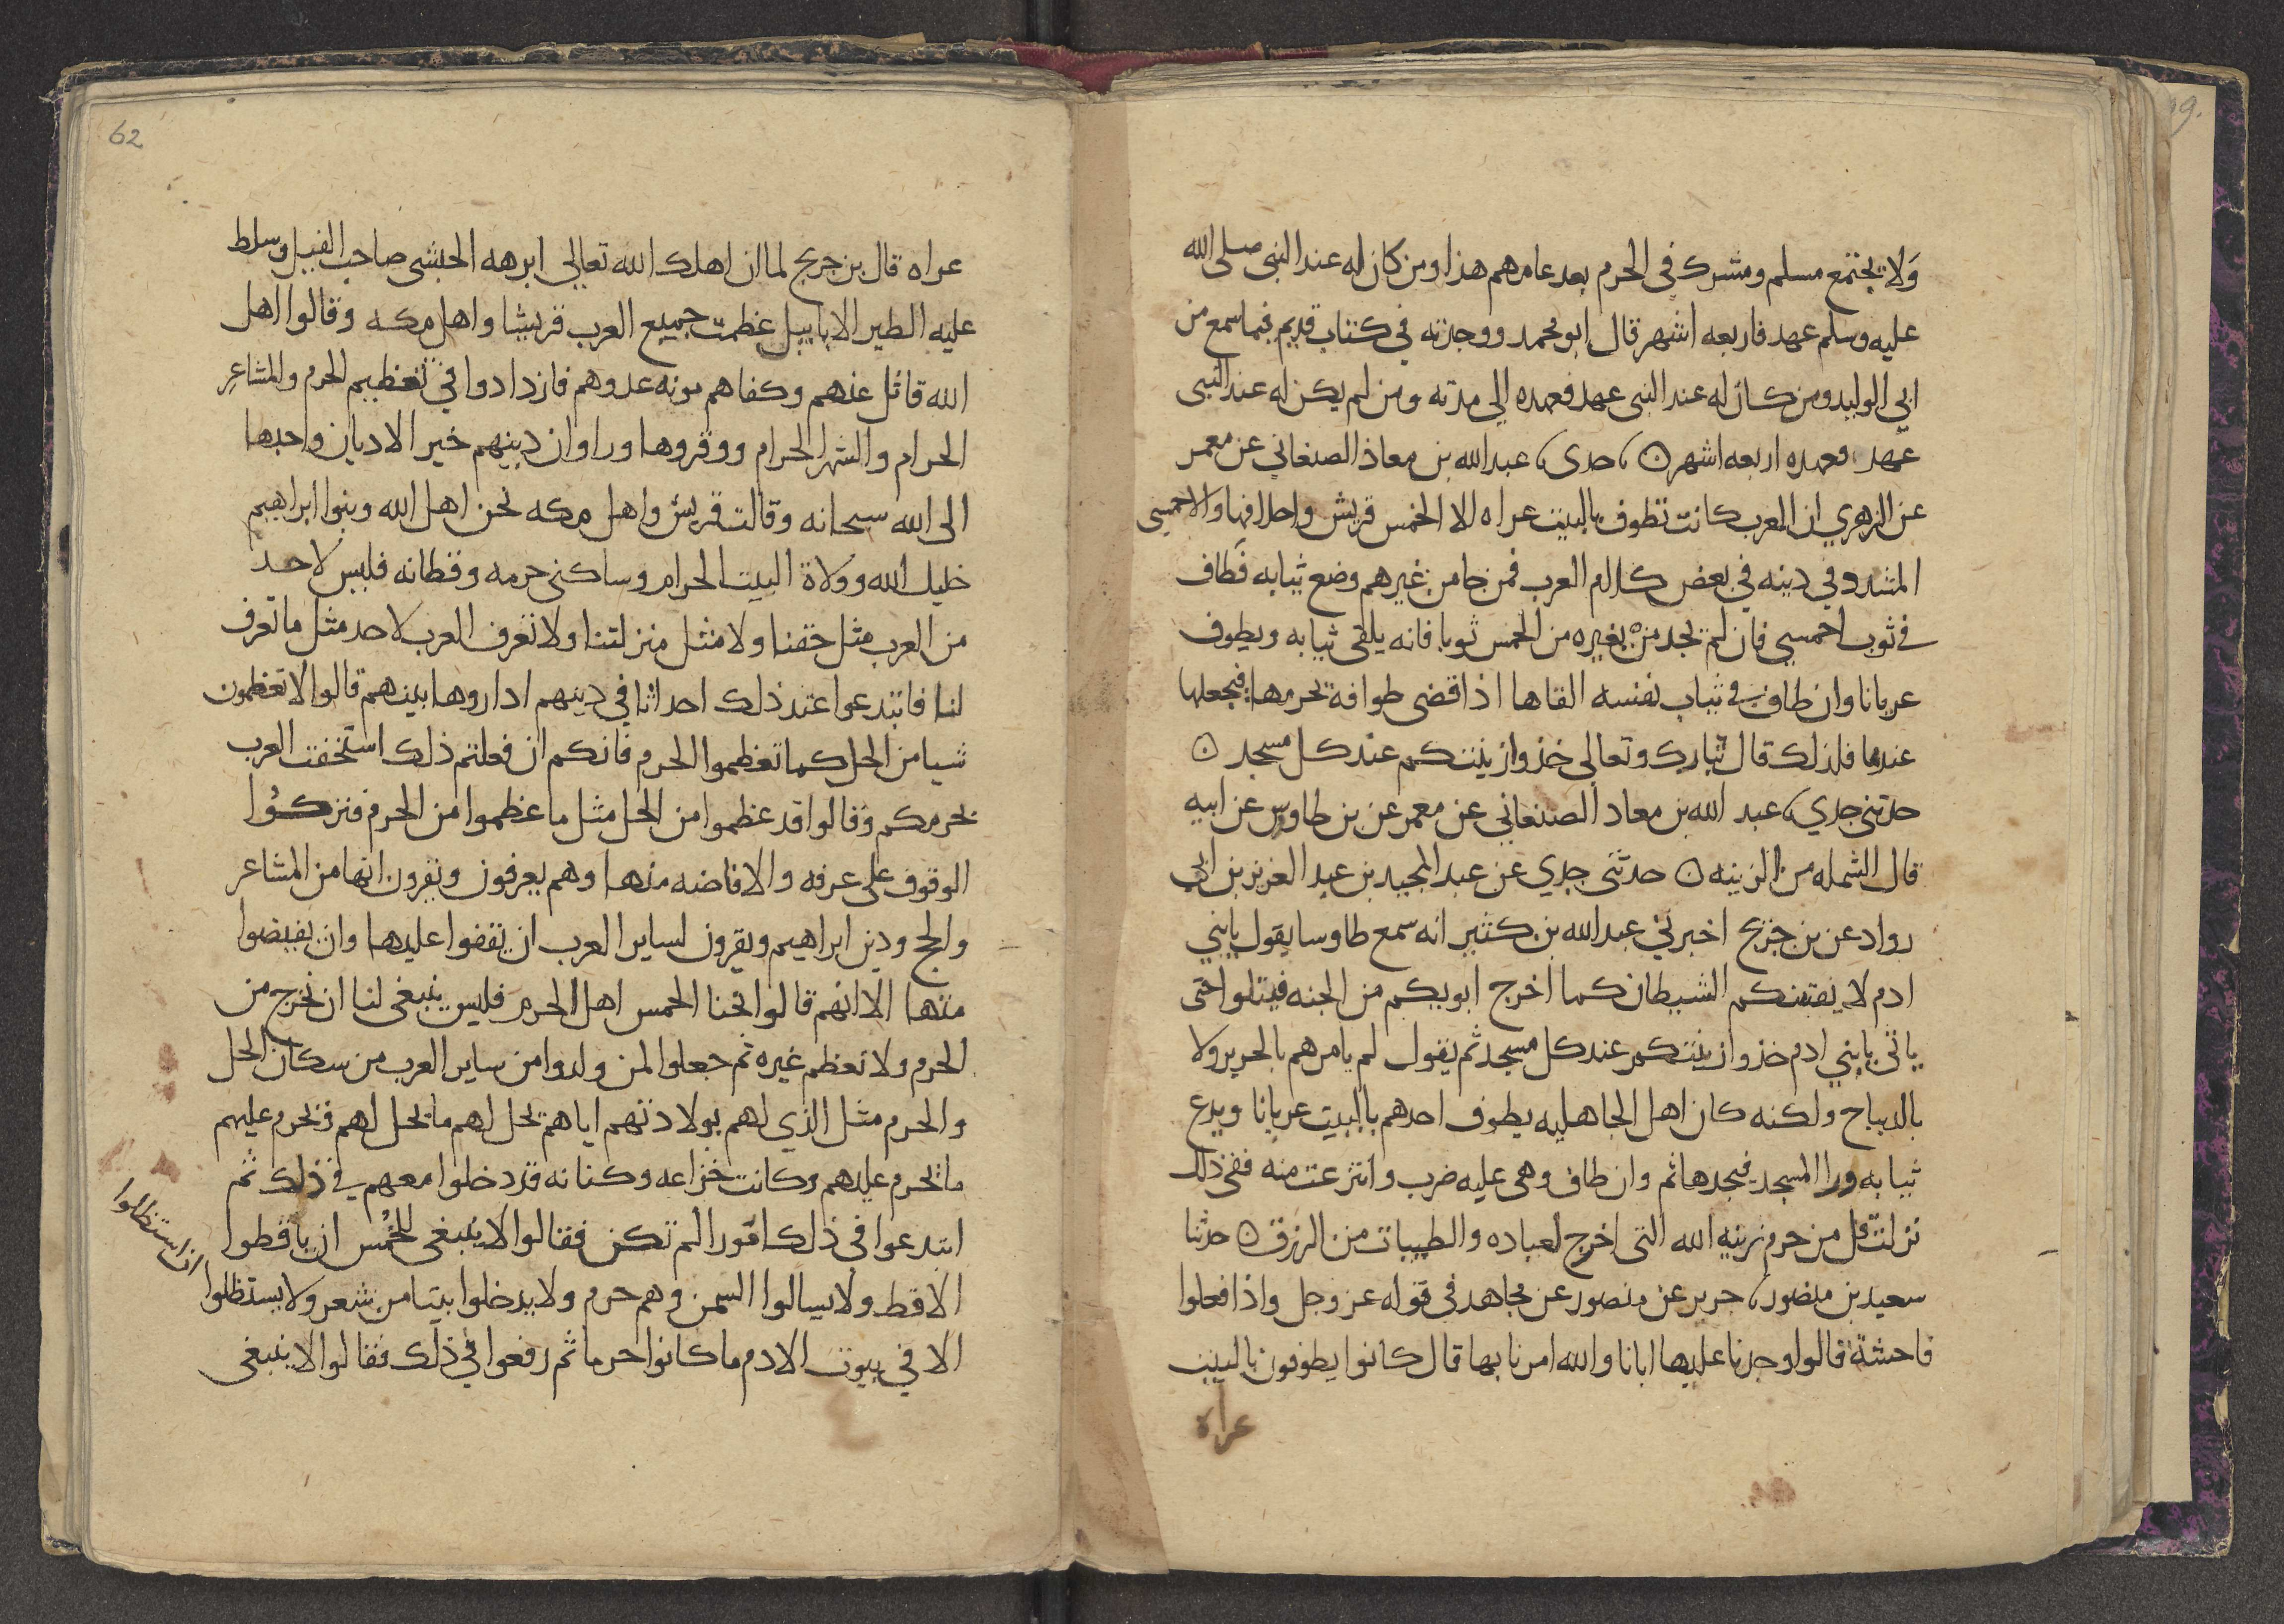 ولا يجتمع مسلم ومشرك في الحرم بعد عامهم هذا ومن كان له عند النبي صلى الله
عليه وسلم عهد فاربعه اشهر قال ابو محمد ووجدته في كتاب قديم فيما سمع من
ابي الوليد ومن كان له عند النبي عهد فعهده الي مدته ومن لم يكن له عند النبي
عهد فعهده اربعه اشهر ن حدي عبد الله بن معاذ الصنعاني عن معمر
عن الزهري ان العرب كانت تطوف بالبيت عراه الا الحمس قريش واحلافها والاحمسي
المشدد في دينه في بعض كلام العرب فمن جا من غيرهم وضع ثيابه فطاف
في ثوب احمسي فان لم يجد من يغيره من الحمس ثوبا فانه يلقي ثيابه ويطوف
عريانا وان طاف في ثياب نفسه القاها اذا قضى طوافه يحرمها فيجعلها
عندها فلذلك قال تبارك وتعالي خذوا زينتكم عند كل مسجد ن
حدثني جدي عبد الله بن معاد الصنعاني عن معمر عن بن طاوس عن ابيه
قال الشمله من الزينه ن حدثني جدي عن عبد المجيد بن عبد العزيز بن ابي
رواد عن بن جريج اخبرني عبد الله بن كثير انه سمع طاوسا يقول يا بني
ادم لا يفتننكم الشيطان كما اخرج ابويكم من الجنه فيتلوا حتى
ياتي يا بني ادم خذوا زينتكم عند كل مسجد ثم يقول لم يامرهم بالحرير ولا
بالديباج ولكنه كان اهل الجاهليه يطوف احدهم بالبيت عريانا ويدع
ثيابه ورا المسجد فيجدها ثم وان طاف وهي عليه ضرب وانتزعت منه ففي ذلك
نزلت قل من حرم زينه الله التي اخرج لعباده والطيبات من الرزق ن حدثنا
سعيد بن منصور جرير عن منصور عن مجاهد في قوله عز وجل واذا فعلوا
فاحشة قالوا وجدنا عليها ابانا والله امرنا بها قال كانوا يطوفون بالبيت
عراة
62
عراه قال بن جريج لما ان اهلك الله تعالي ابرهه الحبشي صاحب الفيل وسلط
عليه الطير الابابيل عظمت جميع العرب قريشا واهل مكه وقالوا اهل
الله قاتل عنهم وكفاهم مونه عدوهم فازدادوا في تعظيم الحرم والمشاعر
الحرام والشهر الحرام ووقروها وراوا ان دينهم خير الاديان واحبها
الى الله سبحانه وقالت قريش واهل مكه نحن اهل الله وبنوا ابراهيم
خليل الله وولاة البيت الحرام وساكني حرمه وقطانه فليس لاحد
من العرب مثل حقنا ولا مثل منزلتنا ولا تعرف العرب لاحد مثل ما تعرف
لنا فابتدعوا عند ذلك احداثا في دينهم اداروها بينهم قالوا لا تعظمون
شيا من الحل كما تعظموا الحرم فانكم ان فعلتم ذلك استخفت العرب
بحرمكم وقالوا قد عظموا من الحل مثل ما عظموا من الحرم فتركوا
الوقوف على عرفه والافاضه منها وهم يعرفون ويقرون انها من المشاعر
والحج ودين ابراهيم ويقرون لساير العرب ان يقفوا عليها وان يفيضوا
منها الا انهم قالوا نحنا الحمس اهل الحرم فليس ينبغي لنا ان نخرج من
الحرم ولا نعظم غيره ثم جعلوا لمن ولدوا من ساير العرب من سكان الحل
والحرم مثل الذي لهم بولادتهم اياهم يحل لهم ما يحل لهم ويحرم عليهم
ما يحرم عليهم وكانت خزاعه وكنانه قد دخلوا معهم في ذلك ثم
ابتدعوا في ذلك امورا لم تكن فقالوا لا ينبغي للحمس ان ياقطوا
الاقط ولا يسالوا السمن وهم حرم ولا يدخلوا بيتا من شعر ولا يستظلوا
ان استظلوا
الا في بيوت الادم ما كانوا حرما ثم رفعوا في ذلك فقالوا لا ينبغي